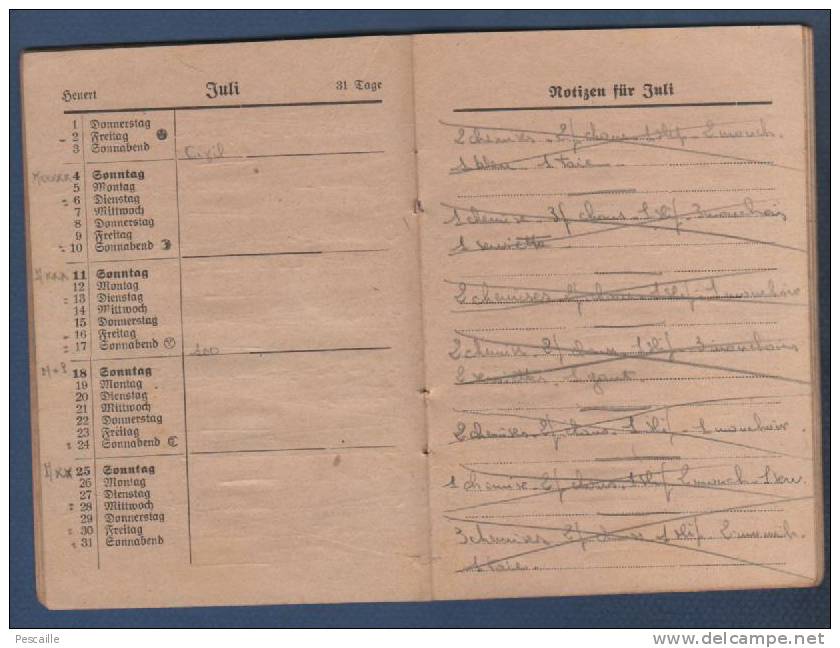 Heuert Juli 31 Tage
1 Donnerstag
2 Freitag
3 Sonnabend Civil
4 Sonntag
5 Montag
6 Dienstag
7 Mittwoch
8 Donnerstag
9 Freitag
10 Sonnabend
11 Sonntag
12 Montag
13 Dienstag
14 Mittwoch
15 Donnerstag
16 Freitag
17 Sonnabend 100
18 Sonntag
19 Montag
20 Dienstag
21 Mittwoch
22 Donnerstag
23 Freitag
24 Sonnabend
25 Sonntag
26 Montag
27 Dienstag
28 Mittwoch
29 Donnerstag
30 Freitag
31 Sonnabend
Notizen für Juli
2 chemises - 2 p/ chaus - 1 slip - 2 mouch.
1 bleu 1 taie
1 chemise - 3 p/ chaus - 1 slip - 3 mouchoirs
1 serviette
2 chemises 2 p/ chaus - 1 slip - 1 mouchoir
2 chemises - 2 p/ chaus - 1 slip - 3 mouchoirs
2 serviettes, 1 gant.
2 chemises - 2 p/ chaus - 1 slip - 1 mouchoir.
1 chemise - 2 p/ chaus - 1 slip 2 mouch - 1 serv.
3 chemises 2 p/ chaus 1 slip. 2 mouch.
1 taie.
Pescaille
www.delcampe.net